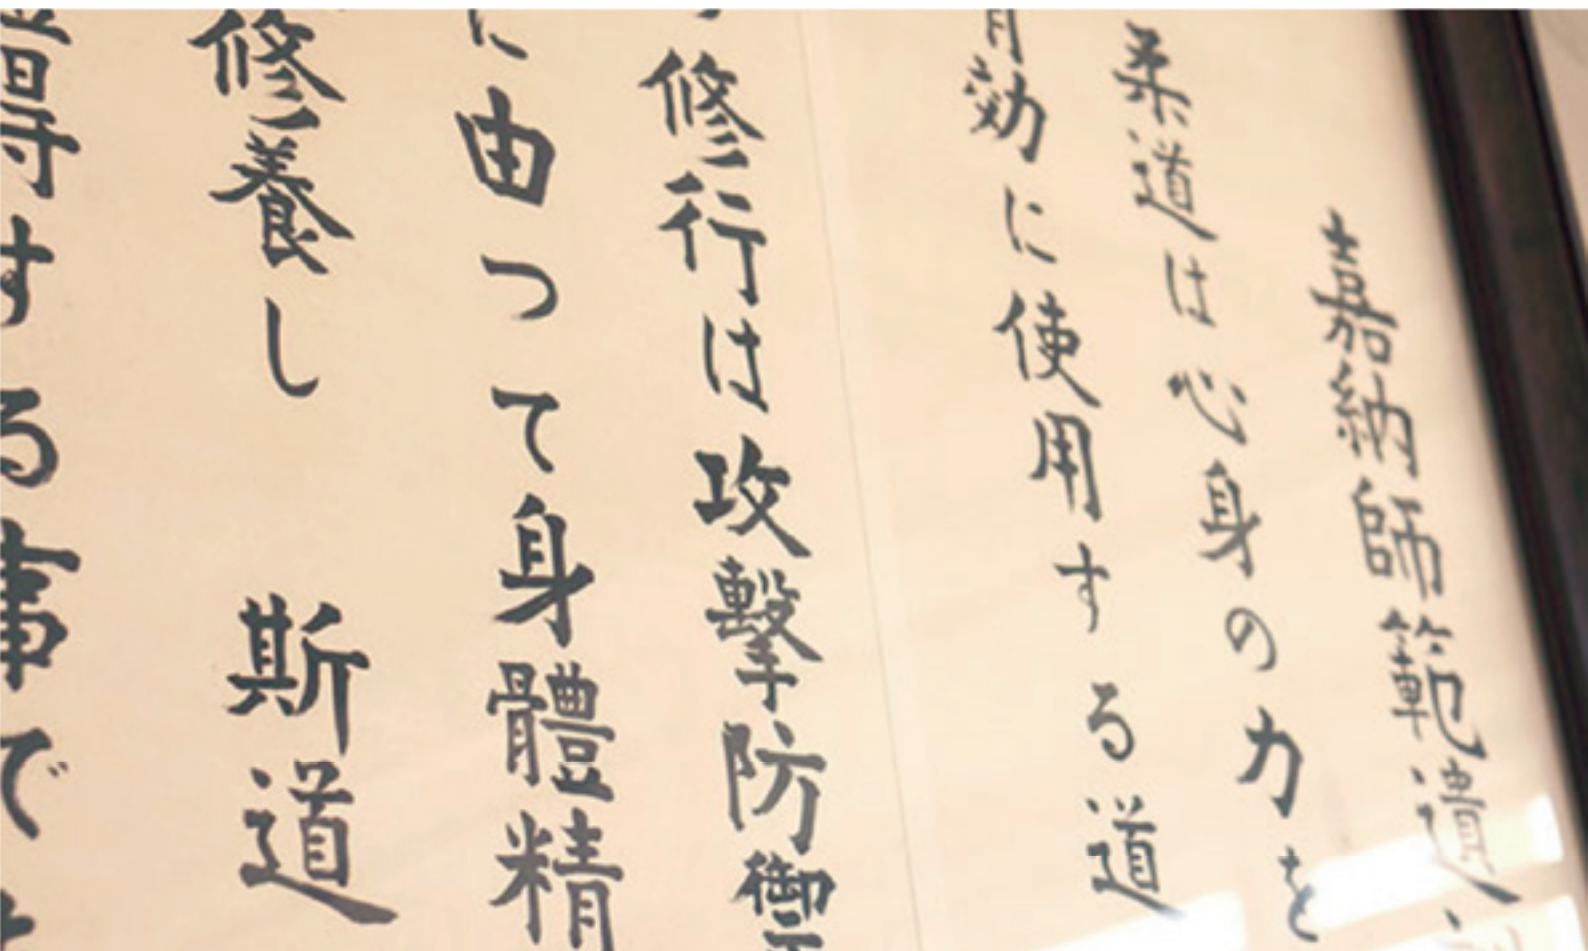 嘉納師範遺
柔道は心身の力を
有効に使用する道
修行は攻撃防禦
に由つて身體精
修養し　斯道
得する事で